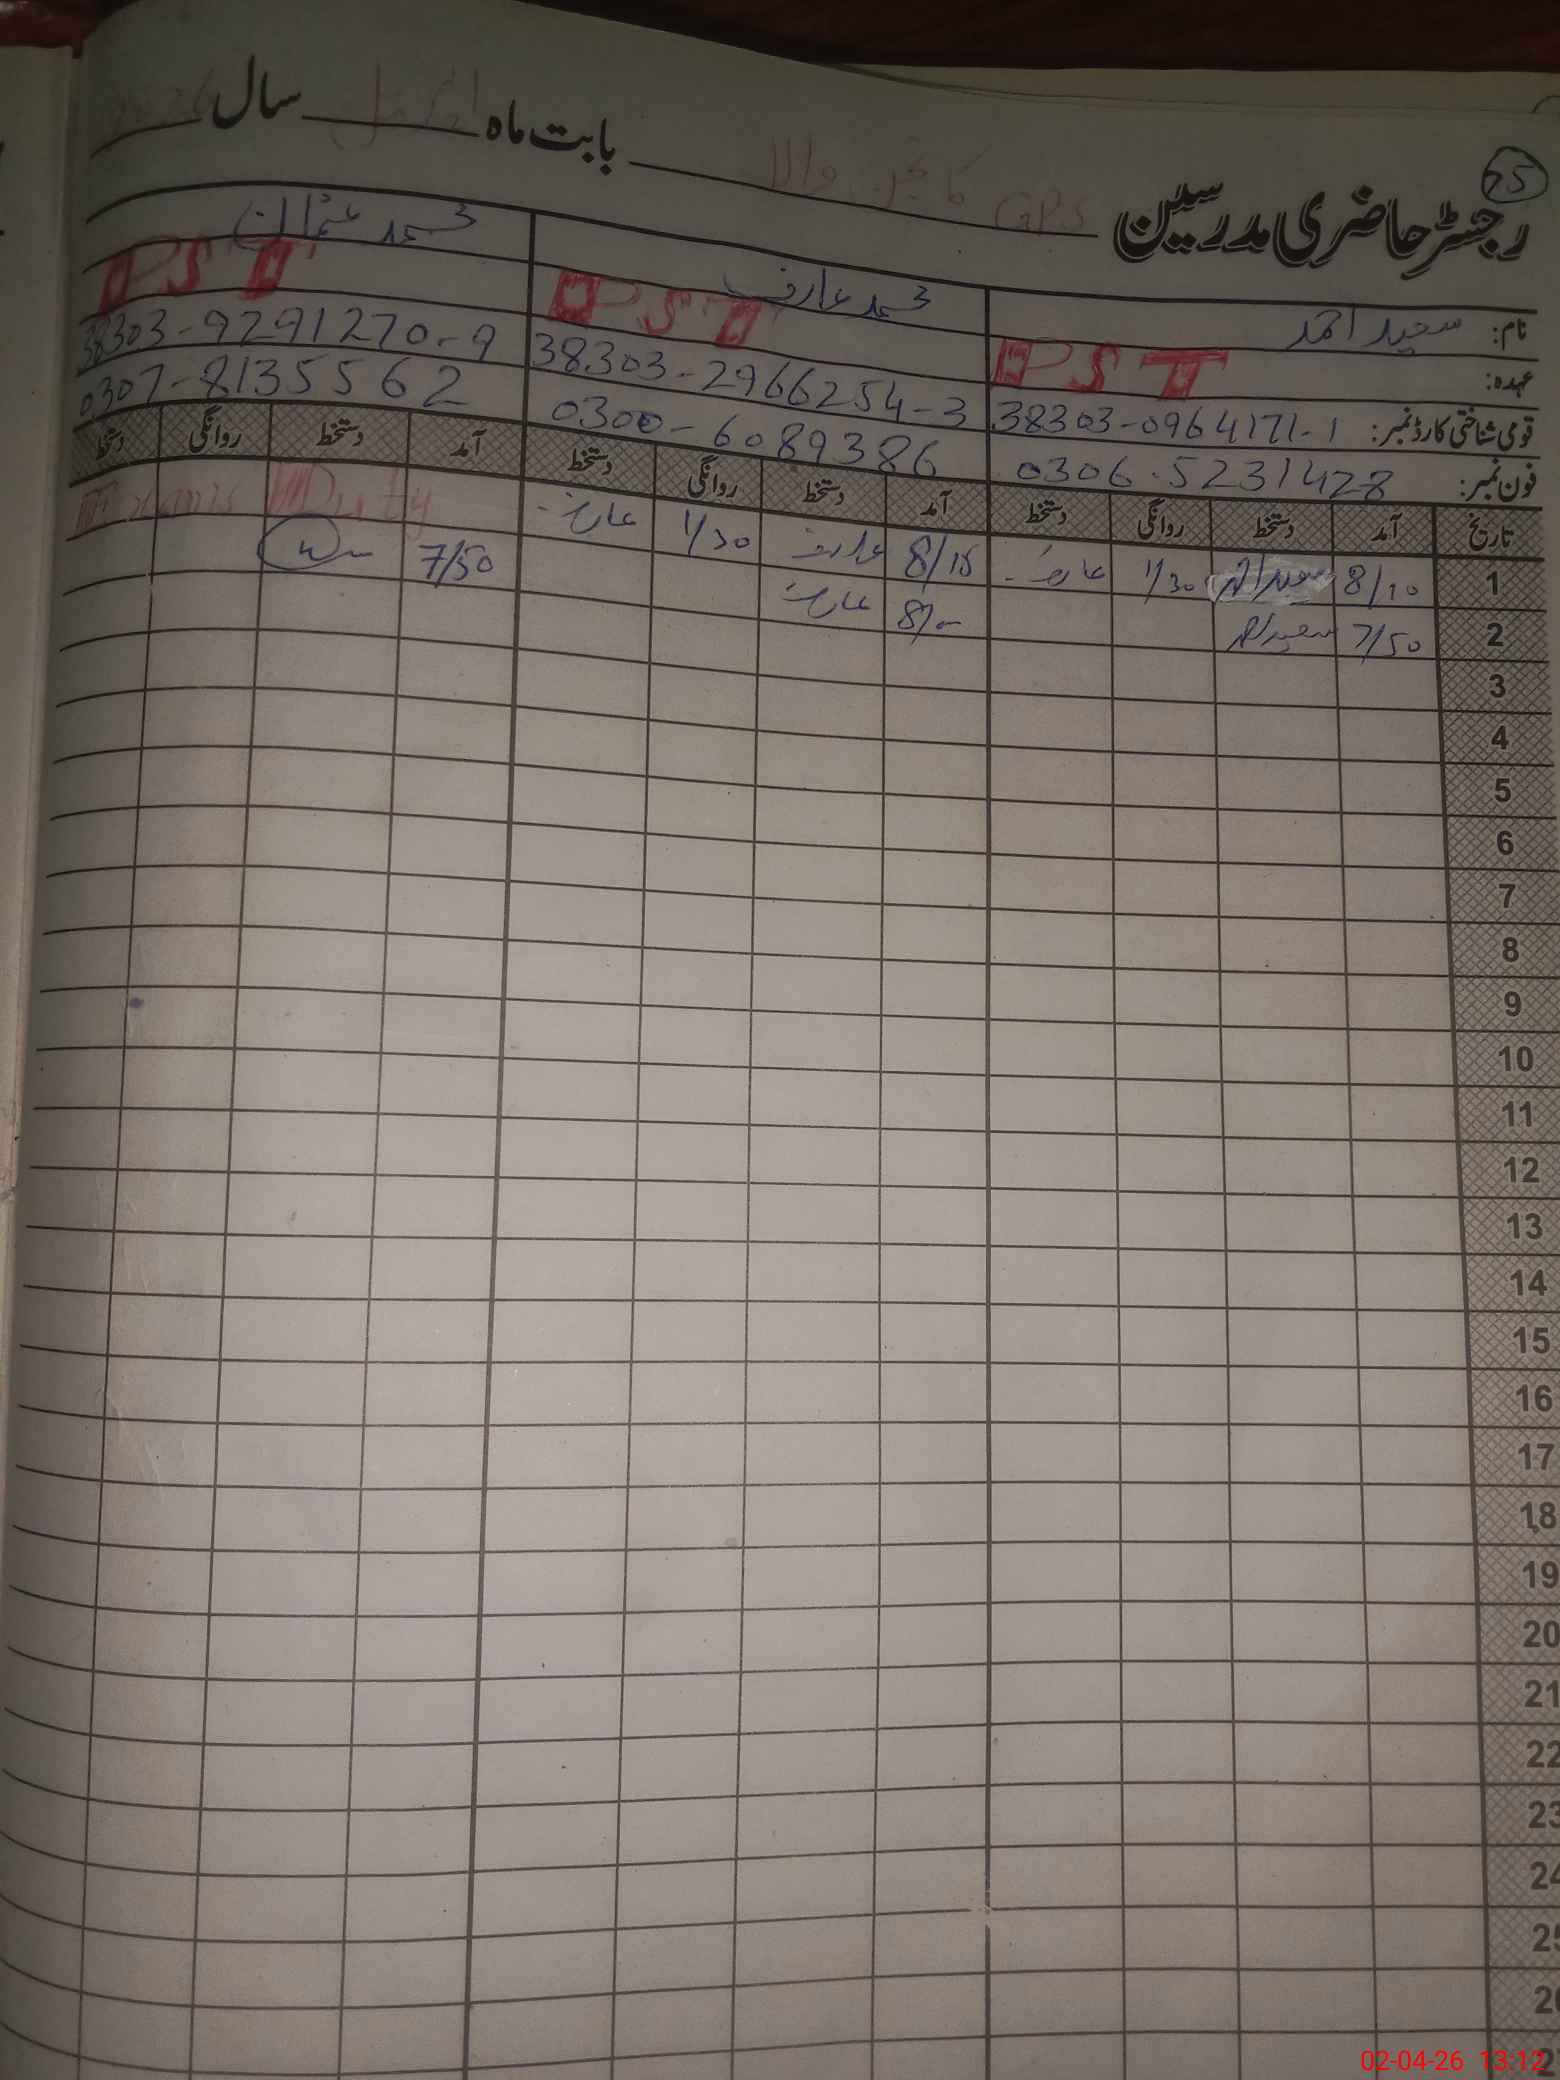 65
رجسٹر حاضری مدرسین GPS والا بابت ماہ اپریل سال 2026
نام: سعید احمد محمد عارف محمد عثمان
عہدہ: PST PST PST
قومی شناختی کارڈ نمبر: 38303-0964171-1 38303-2966254-3 38303-9291270-9
فون نمبر: 0306-5231428 0300-6089386 0307-8135562
تاریخ آمد دستخط روانگی دستخط آمد دستخط روانگی دستخط آمد دستخط روانگی دستخط
1 8/10 سعید احمد 1/30 عارف 8/15 عارف 1/30 عارف
2 7/50 سعید احمد 8/00 عارف 7/50
3
4
5
6
7
8
9
10
11
12
13
14
15
16
17
18
19
20
21
22
23
24
25
26
02-04-26 13:12